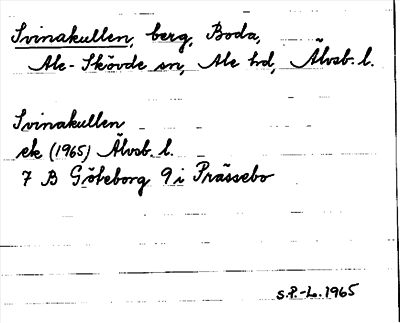 Svinakullen, berg, Boda,
Ale-Skövde sn, Ale hd, Älvsb. l.
Svinakullen
ek (1965) Älvsb. l.
7 B Göteborg 9 i Prässebo
S.P.-L. 1965